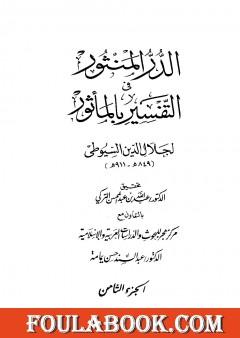 الدر المنثور
في
التفسير بالمأثور
لجلال الدين السيوطي
(٨٤٩هـ - ٩١١هـ)
تحقيق
الدكتور عبدالله بن عبدالمحسن التركي
بالتعاون مع
مركز هجر للبحوث والدراسات العربية والإسلامية
الدكتور عبدالسند حسن يمامة
الجزء الثامن
FOULABOOK.COM